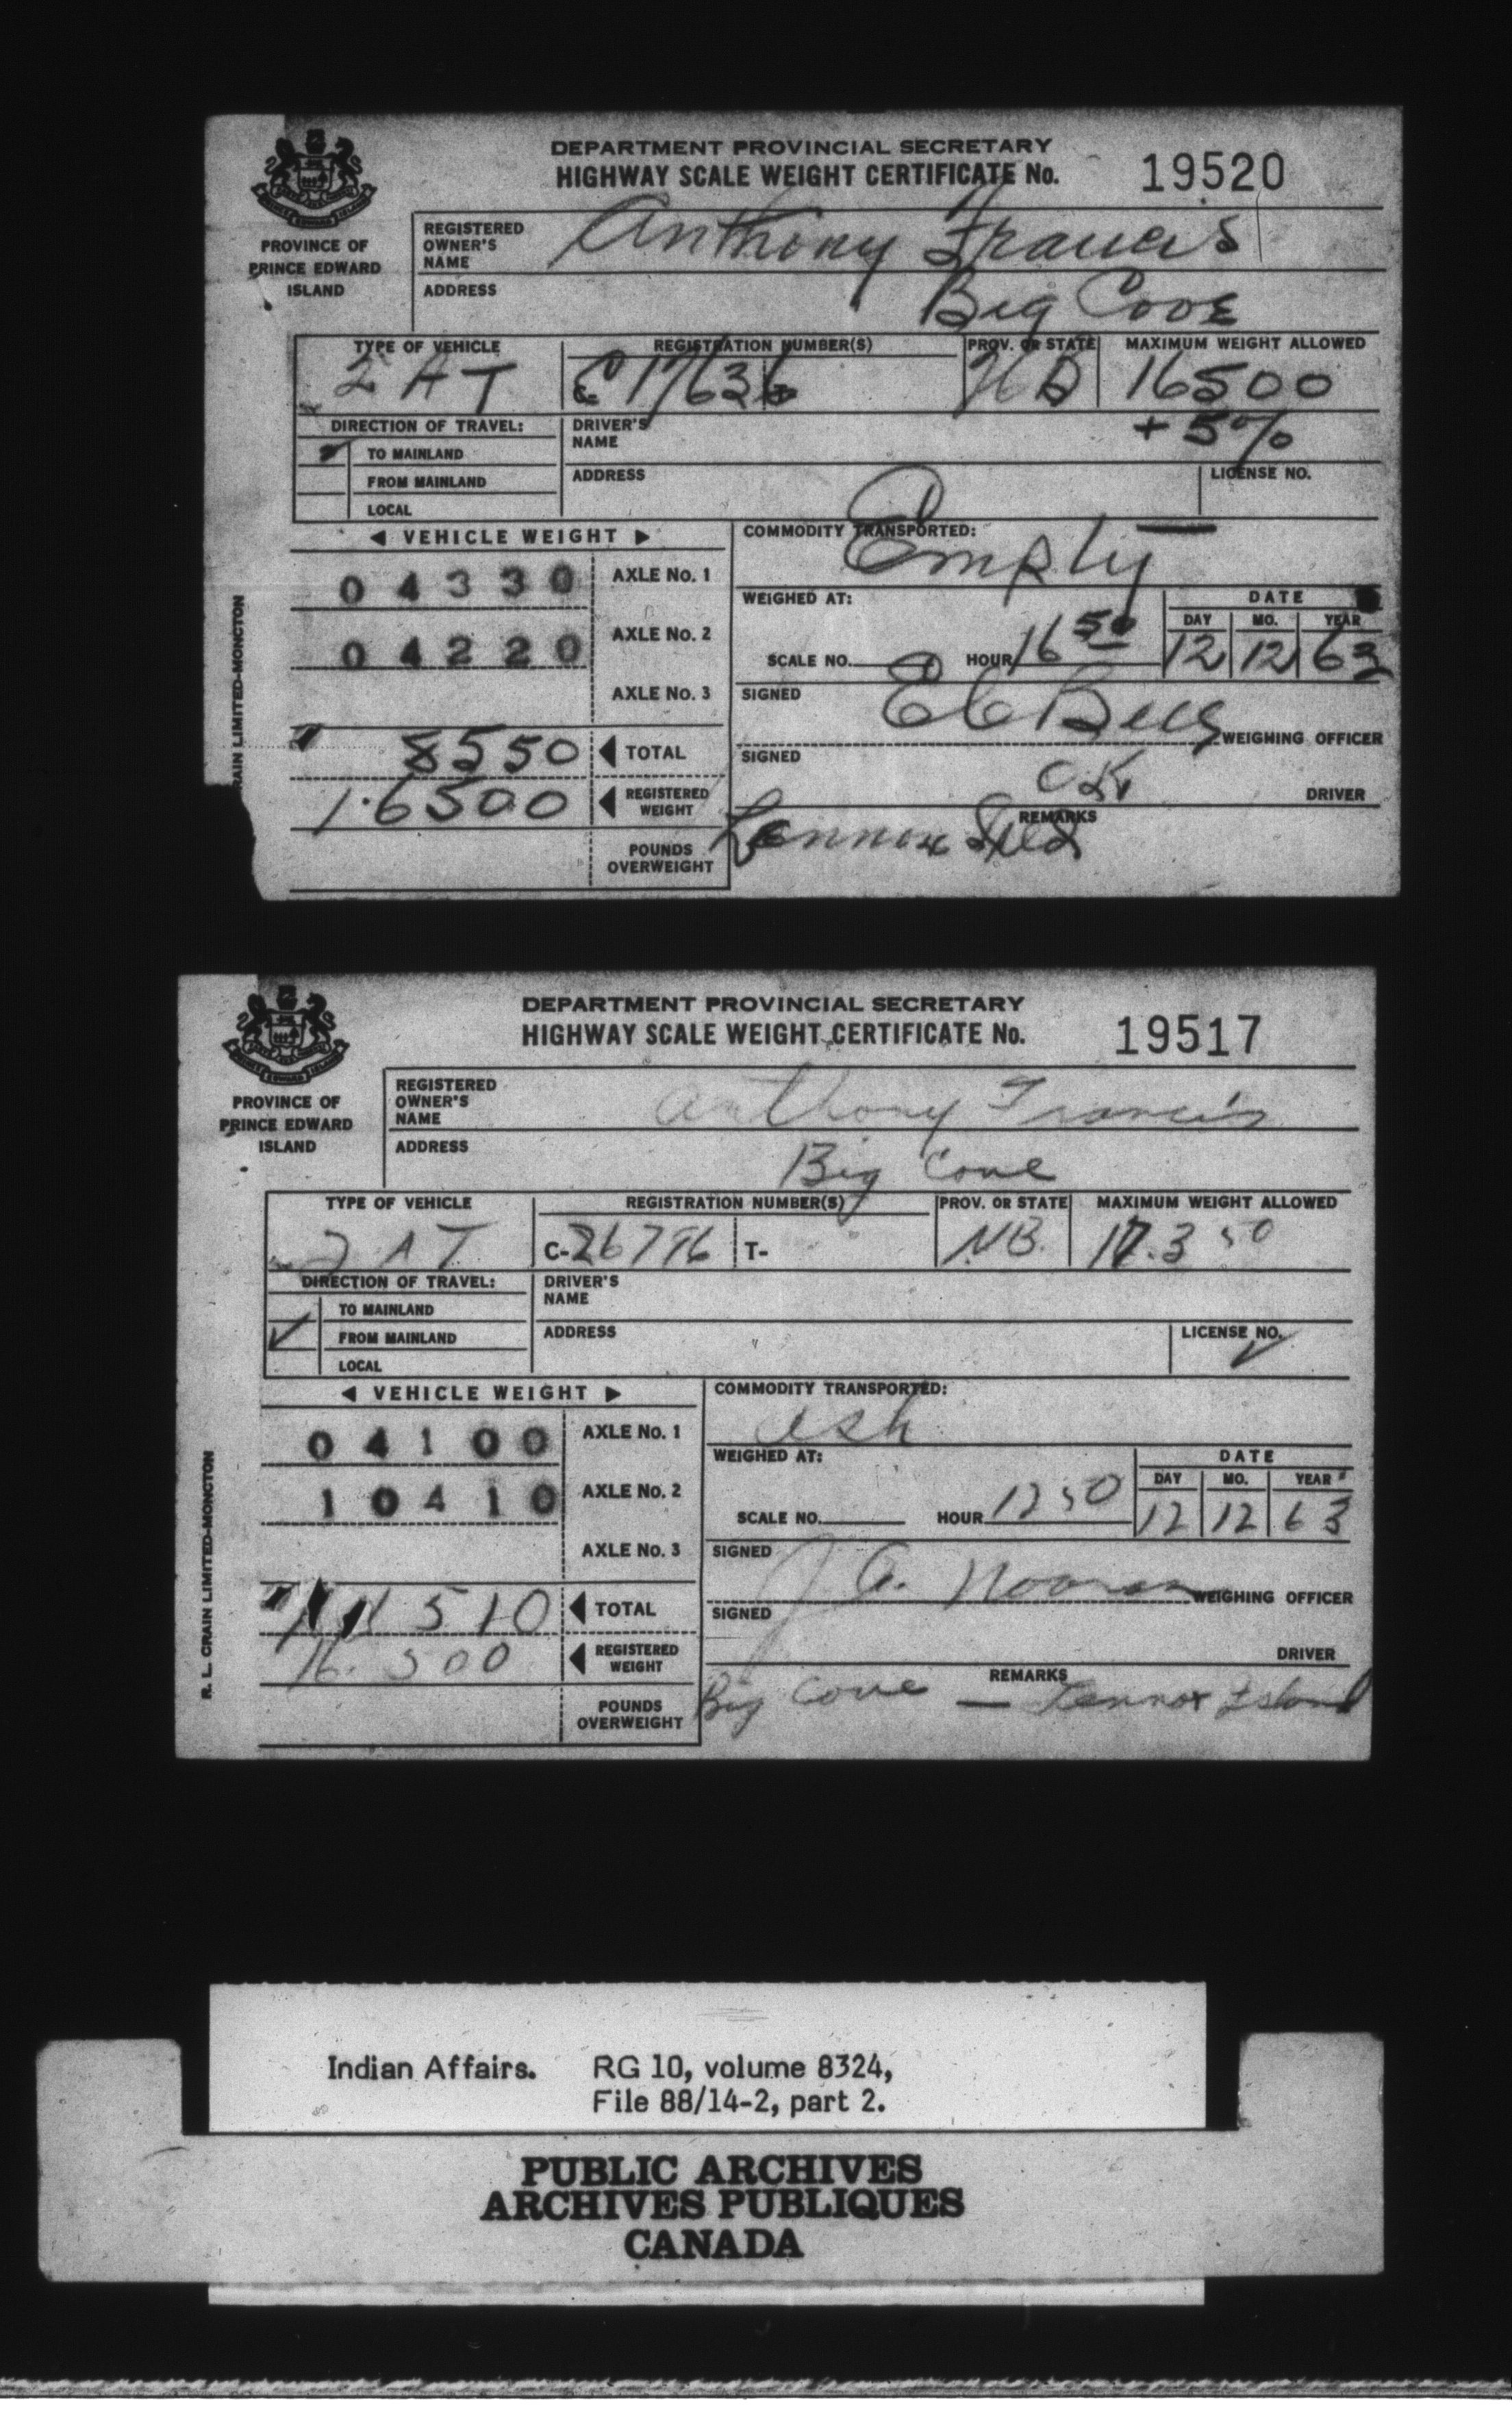 DEPARTMENT PROVINCIAL SECRETARY
HIGHWAY SCALE WEIGHT CERTIFICATE No. 19520
PROVINCE OF
PRINCE EDWARD
ISLAND
REGISTERED
OWNER'S
NAME
Anthony Francis
ADDRESS
Big Cove
TYPE OF VEHICLE
2 A T
REGISTRATION NUMBER(S)
C 17636
PROV. OR STATE
NB
MAXIMUM WEIGHT ALLOWED
16500
+ 5%
DIRECTION OF TRAVEL:
TO MAINLAND
FROM MAINLAND
LOCAL
DRIVER'S
NAME
ADDRESS
LICENSE NO.
◀ VEHICLE WEIGHT ▶
04330 AXLE No. 1
04220 AXLE No. 2
AXLE No. 3
8550 ◀ TOTAL
16500 ◀ REGISTERED
WEIGHT
POUNDS
OVERWEIGHT
COMMODITY TRANSPORTED:
Empty
WEIGHED AT:
SCALE NO. HOUR 16 50
DATE
DAY MO. YEAR
12 12 63
SIGNED
WEIGHING OFFICER
SIGNED
OK
DRIVER
REMARKS
Lennox
RAIN LIMITED-MONCTON
DEPARTMENT PROVINCIAL SECRETARY
HIGHWAY SCALE WEIGHT CERTIFICATE No. 19517
PROVINCE OF
PRINCE EDWARD
ISLAND
REGISTERED
OWNER'S
NAME
Anthony Francis
ADDRESS
Big Cove
TYPE OF VEHICLE
2 A T
REGISTRATION NUMBER(S)
C-26796 T-
PROV. OR STATE
NB.
MAXIMUM WEIGHT ALLOWED
17.350
DIRECTION OF TRAVEL:
TO MAINLAND
✓ FROM MAINLAND
LOCAL
DRIVER'S
NAME
ADDRESS
LICENSE NO.
✓
◀ VEHICLE WEIGHT ▶
04100 AXLE No. 1
10410 AXLE No. 2
AXLE No. 3
510 ◀ TOTAL
16.500 ◀ REGISTERED
WEIGHT
POUNDS
OVERWEIGHT
COMMODITY TRANSPORTED:
Ash
WEIGHED AT:
SCALE NO. HOUR 1250
DATE
DAY MO. YEAR
12 12 63
SIGNED
J. A. Noonan
WEIGHING OFFICER
SIGNED
DRIVER
REMARKS
Big Cove — Lennox Island
R. L. CRAIN LIMITED-MONCTON
Indian Affairs. RG 10, volume 8324,
File 88/14-2, part 2.
PUBLIC ARCHIVES
ARCHIVES PUBLIQUES
CANADA